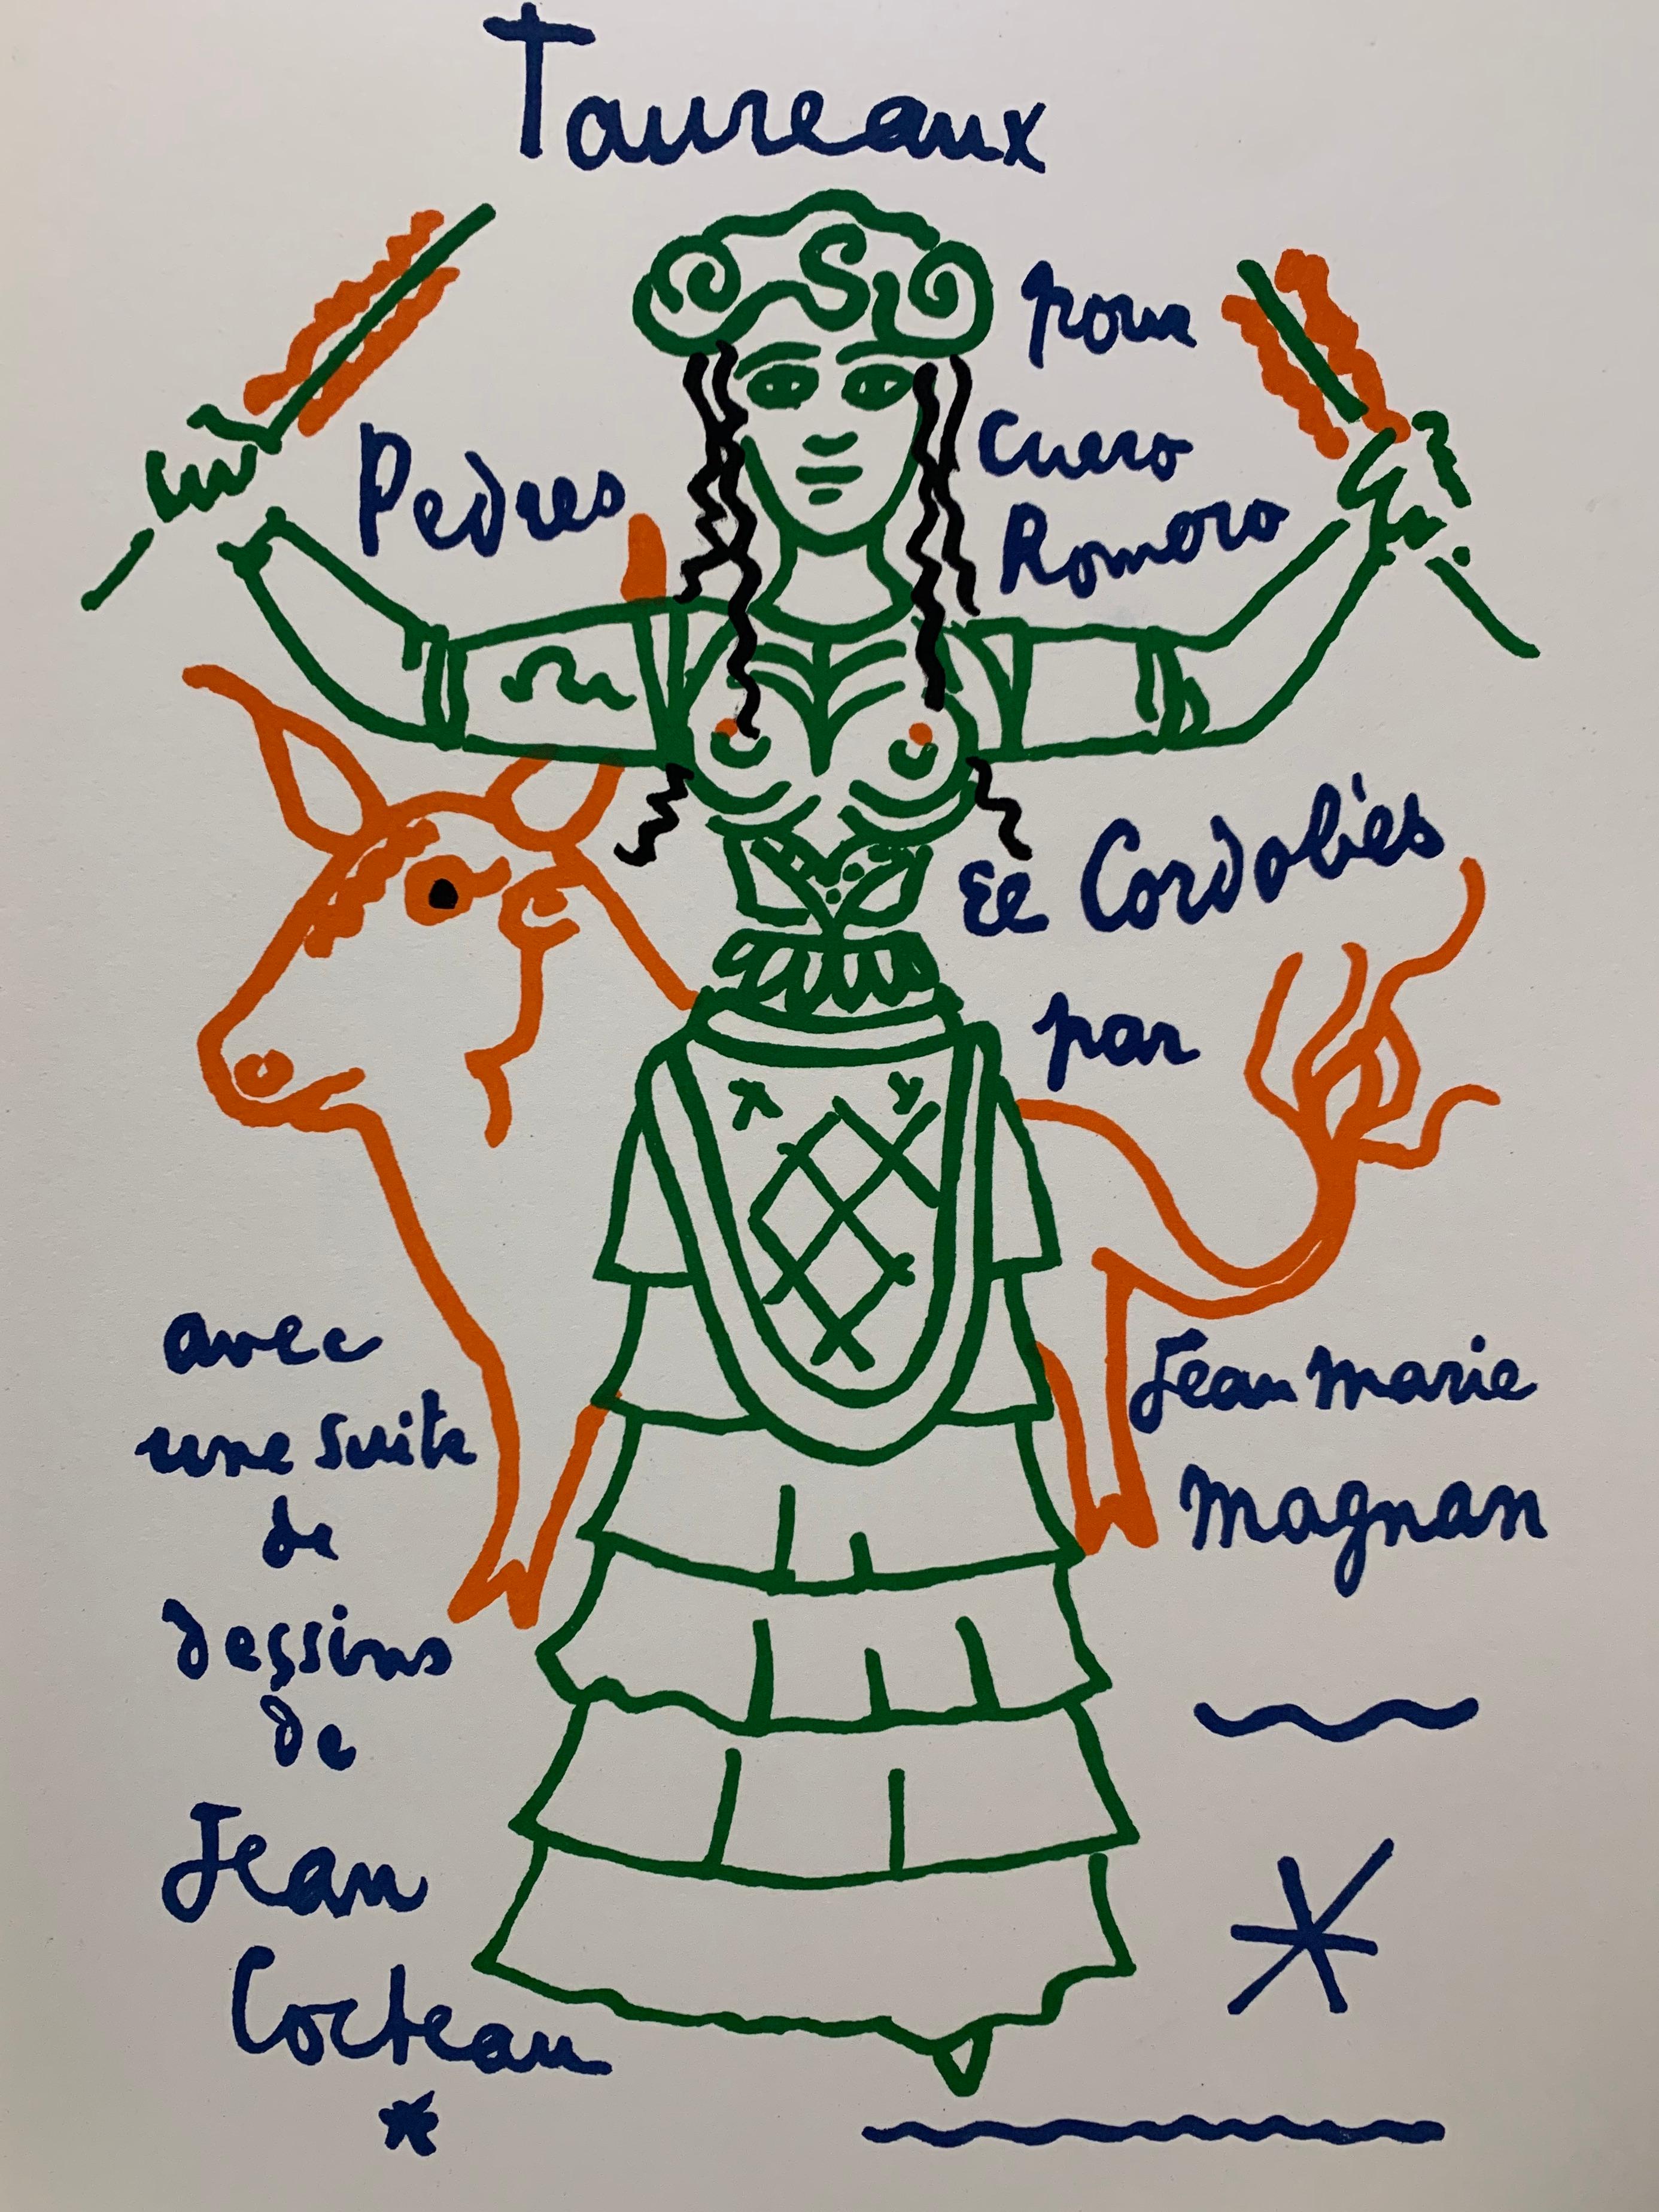 Taureaux
pour
Pedres
Cuero
Romero
El Cordobès
par
Jean Marie
Magnan
avec
une suite
de
dessins
de
Jean
Cocteau